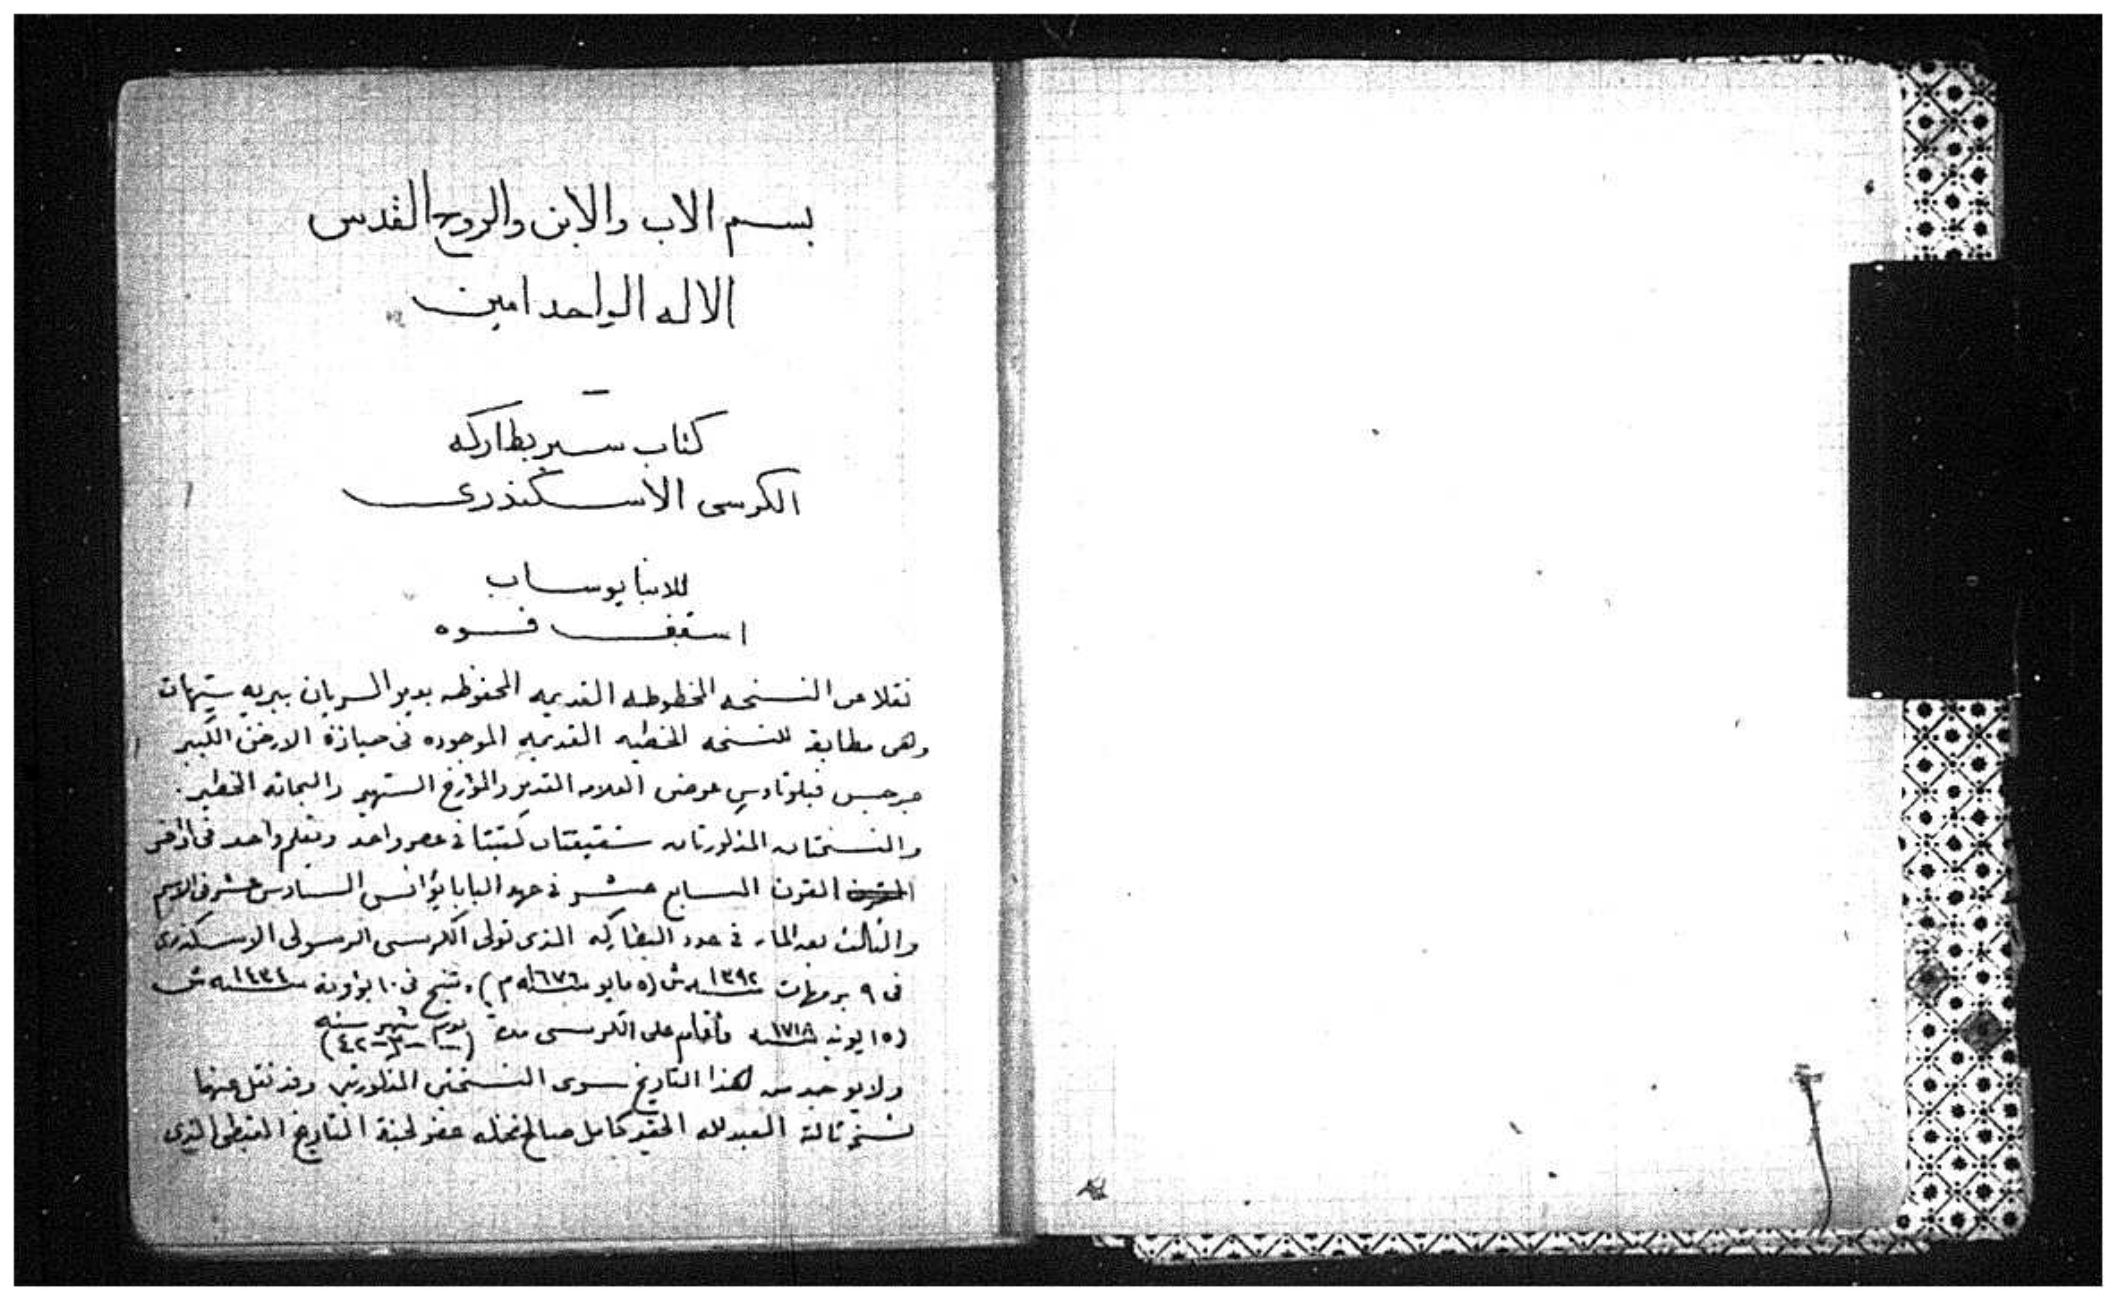 بسم الاب والابن والروح القدس
الاله الواحد امين
كتاب سير بطاركه
الكرسى الاسكندرى
للانبا يوساب
اسقف فوه
نقلا عن النسخه المخطوطه القديمه المحفوظه بدير السريان ببريه شيهات
وهى مطابقه للنسخه الخطيه القديمه الموجوده فى حيازة الارخن الكبير
جرجس فيلوثاوس عوض العلامه القدير والمؤرخ الشهير والبحاثه الخطير.
والنسختان المذكورتان شقيقتان كتبتا فى عصر واحد وبقلم واحد فى اواخر
القرن السابع عشر فى عهد البابا يؤانس السادس عشر فى الاسم
والثالث بعد المايه فى عدد البطاركه الذى تولى الكرسى الرسولى الاسكندرى
فى ٩ برمهات سنة ١٣٩٢ ش (٥ مايو سنة ١٦٧٦ م) وتنيح فى ١٠ بؤونه سنة ١٤٣٤ ش
(١٥ يونيه سنة ١٧١٨ وأقام على الكرسى مدة (يوم شهر سنه ٠٠-٣-٤٢)
ولا يوجد من لهذا التاريخ سوى النسختين المذكورتين وقد نقل عنهما
نسخة ثالثة العبد لله الحقير كامل صالح نخله عضو لجنة التاريخ القبطى الذى